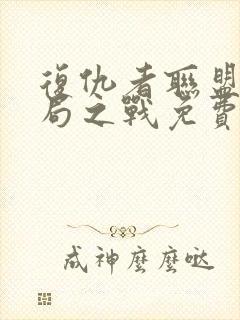 復仇者聯盟
局之戰免費
成神麼麼噠